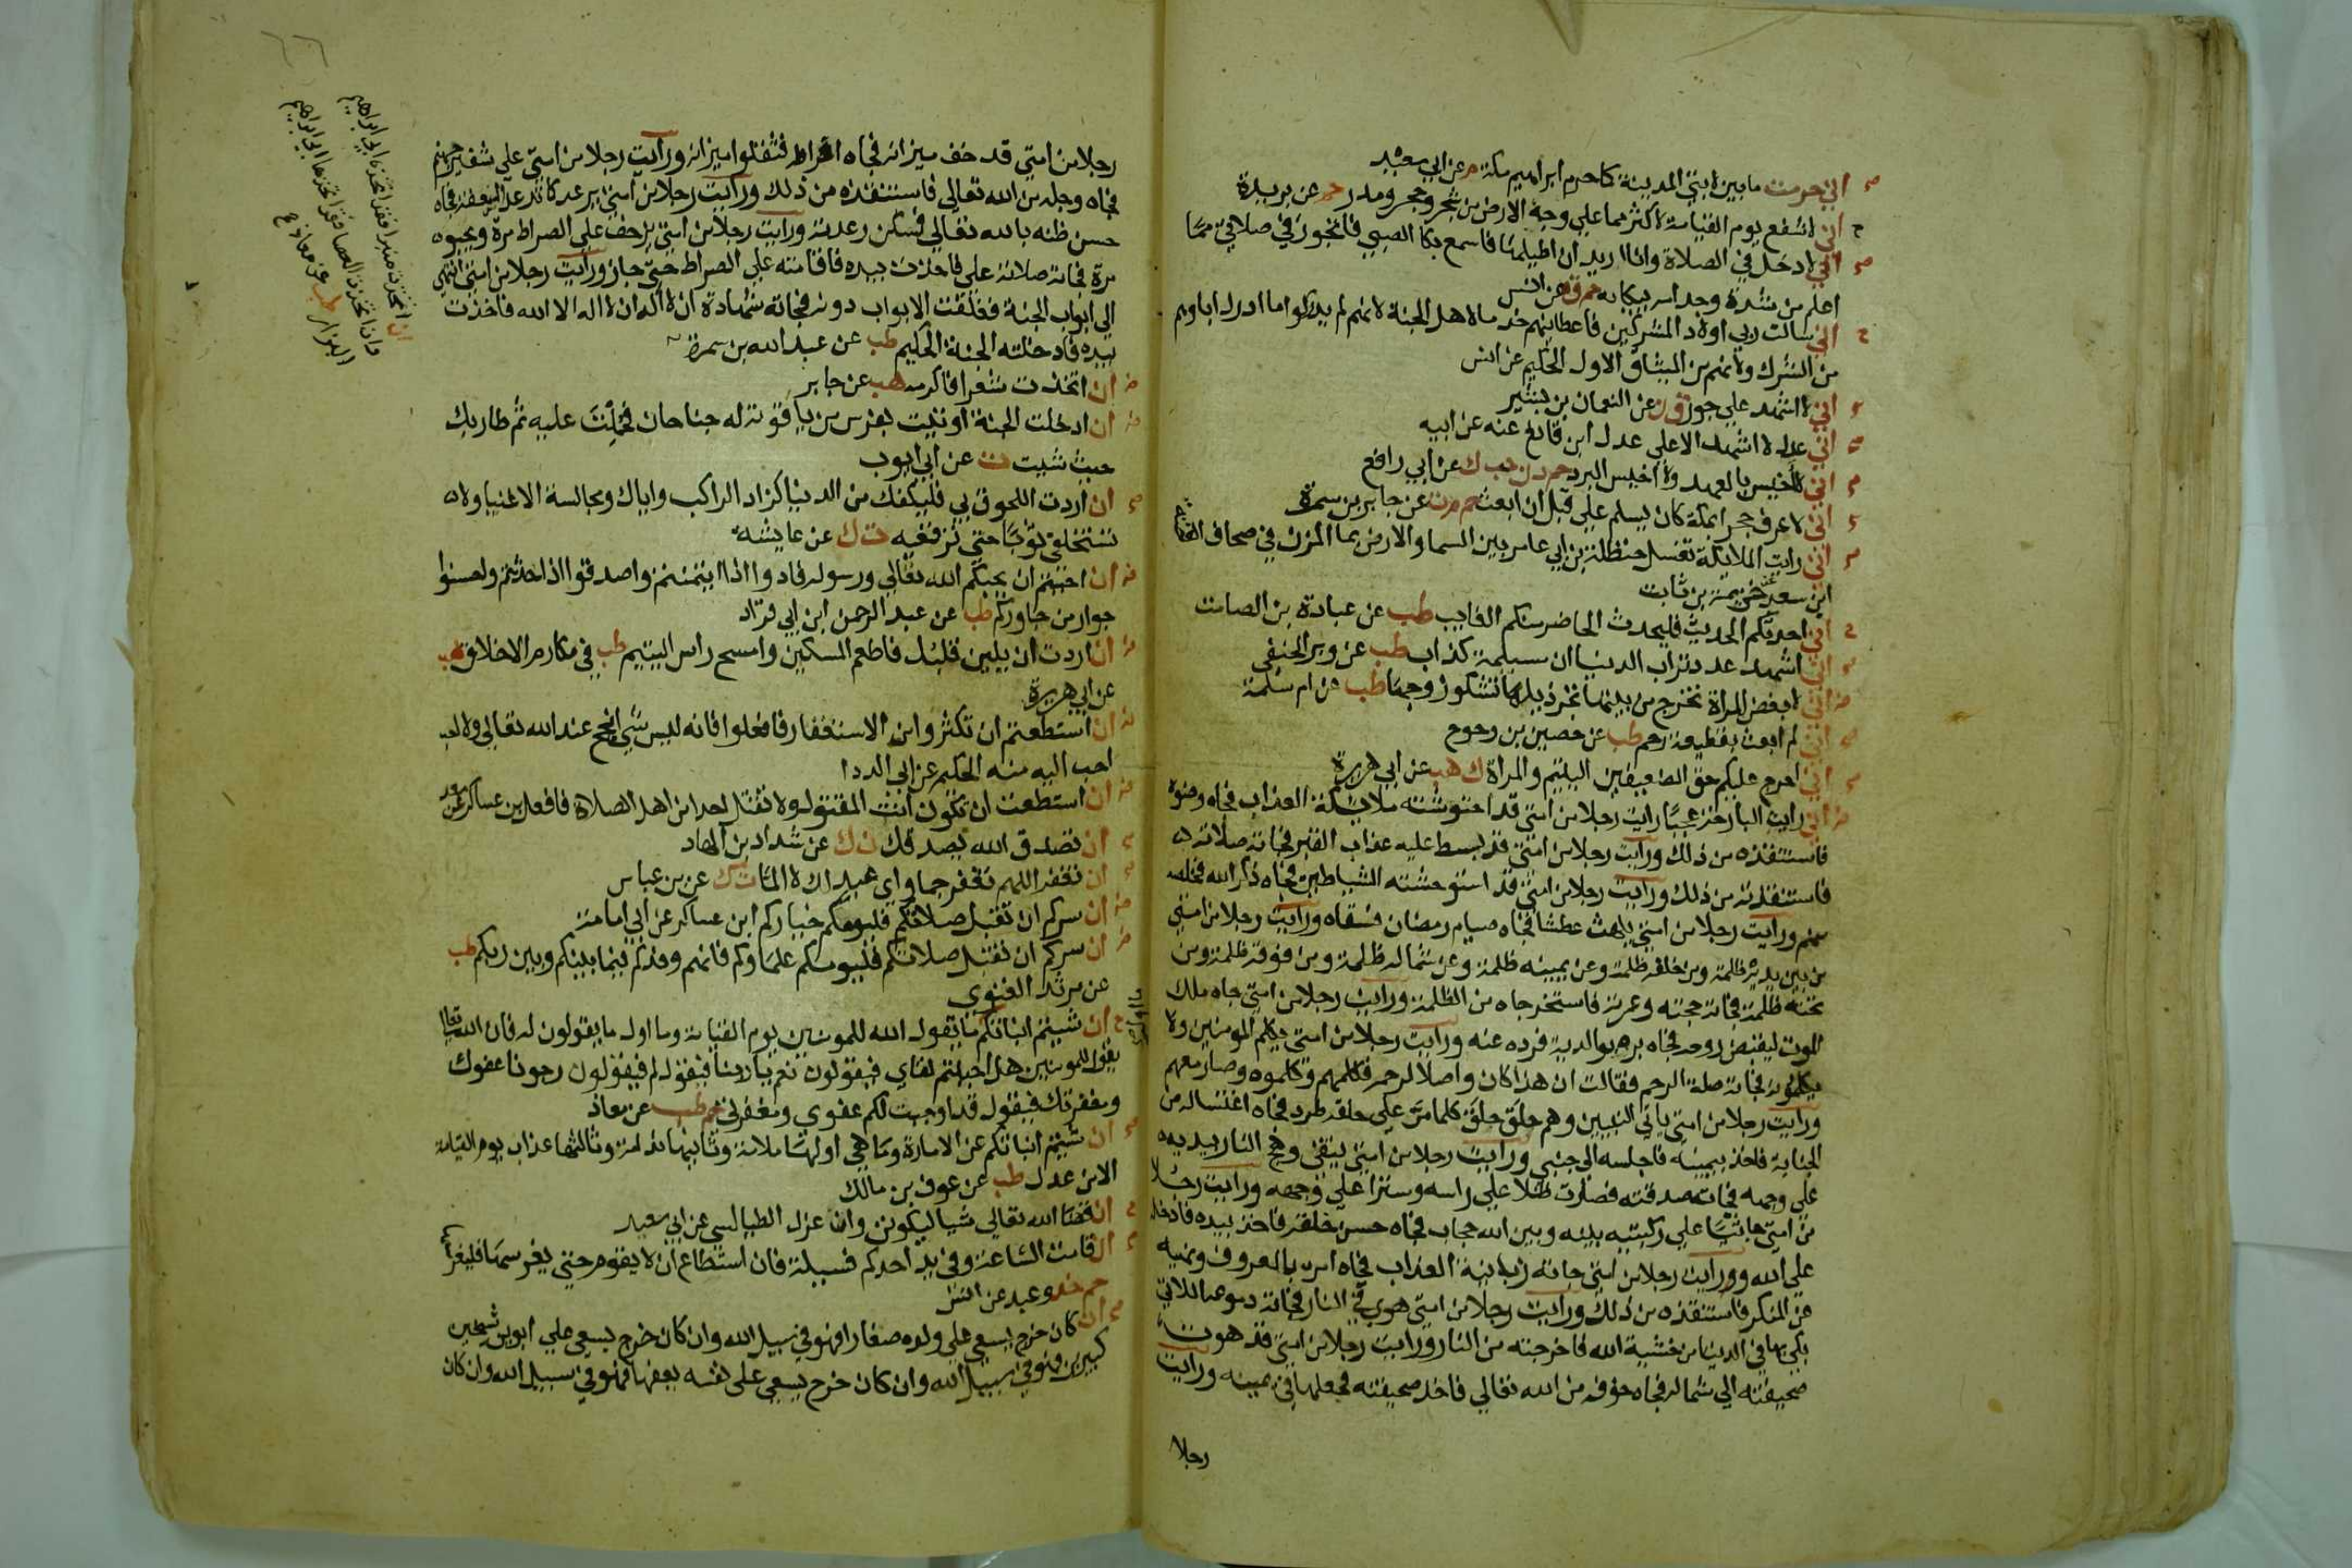 اني حرمت ما بين لابتي المدينة كما حرم ابراهيم مكة م عن ابي سعيد
اني لاشفع يوم القيامة لاكثر مما علي وجه الارض من شجر وحجر ومدر حم عن بريدة
اني لادخل في الصلاة وانا اريد ان اطيلها فاسمع بكا الصبي فاتجوز في صلاتي مما
اعلم من شدة وجد امه ببكايه حم ق ه عن انس
اني سالت ربي اولاد المشركين فاعطانيهم خدما لاهل الجنة لانهم لم يدركوا ما ادرك اباوهم
من الشرك ولانهم من الميثاق الاول الحكيم عن انس
اني لا اشهد علي جور ق ن عن النعمان بن بشير
اني عدل لا اشهد الا علي عدل ابن قانع عنه عن ابيه
اني لا اخيس بالعهد ولا احبس البرد حم د ن حب ك عن ابي رافع
اني لاعرف حجرا بمكة كان يسلم علي قبل ان ابعث حم م ت عن جابر بن سمرة
اني رايت الملايكة تغسل حنظلة بن ابي عامر بين السما والارض بما المزن في صحاف الفضة
ابن سعد عن خزيمة بن ثابت
اني احدثكم الحديث فليحدث الحاضر منكم الغايب طب عن عبادة بن الصامت
اني اشهد عدد تراب الدنيا ان مسيلمة كذاب طب عن وبر الحنفي
اني لابغض المراة تخرج من بيتها تجر ذيلها تشكو زوجها طب عن ام سلمة
اني لم ابعث بقطيعة رحم طب عن حصين بن وحوح
اني احرج عليكم حق الضعيفين اليتيم والمراة ك هب عن ابي هريرة
اني رايت البارحة عجبا رايت رجلا من امتي قد احتوشته ملايكة العذاب فجاه وضوه
فاستنقذه من ذلك ورايت رجلا من امتي قد بسط عليه عذاب القبر فجاته صلاته
فاستنقذته من ذلك ورايت رجلا من امتي قد استوحشته الشياطين فجاه ذكر الله فخلصه
منهم ورايت رجلا من امتي يلهث عطشا فجاه صيام رمضان فسقاه ورايت رجلا من امتي
من بين يديه ظلمة ومن خلفه ظلمة وعن يمينه ظلمة وعن شماله ظلمة ومن فوقه ظلمة ومن
تحته ظلمة فجاته حجته وعمرته فاستخرجاه من الظلمة ورايت رجلا من امتي جاه ملك
الموت ليقبض روحه فجاه بره بوالديه فرده عنه ورايت رجلا من امتي يكلم المومنين ولا
يكلمونه فجاته صلة الرحم فقالت ان هذا كان واصلا لرحمه فكلمهم وكلموه وصار معهم
ورايت رجلا من امتي ياتي النبيين وهم حلق حلق كلما مر علي حلقة طرد فجاه اغتساله من
الجنابة فاخذ بيمينه فاجلسه الي جنبي ورايت رجلا من امتي يتقي وهج النار بيديه
علي وجهه فجاته صدقته فصارت ظلا علي راسه وسترا علي وجهه ورايت رجلا
من امتي جاثيا علي ركبتيه بينه وبين الله حجاب فجاه حسن خلقه فاخذ بيده فادخله
علي الله وورايت رجلا من امتي جاته زبانية العذاب فجاه امره بالمعروف ونهيه
عن المنكر فاستنقذه من ذلك ورايت رجلا من امتي هوي في النار فجاته دموعه اللاتي
بكي بها في الدنيا من خشية الله فاخرجته من النار ورايت رجلا من امتي قد هوت
صحيفته الي شماله فجاه خوفه من الله تعالي فاخذ صحيفته فجعلها في يمينه ورايت
رجلا
رجلا من امتي قد خف ميزانه فجاه افراطه فثقلوا ميزانه ورايت رجلا من امتي علي شفير جهنم
فجاه وجله من الله تعالي فاستنقذه من ذلك ورايت رجلا من امتي يرعد كما ترعد السعفة فجاه
حسن ظنه بالله تعالي فسكن رعدته ورايت رجلا من امتي يزحف علي الصراط مرة ويحبوه
مرة فجاته صلاته علي فاخذت بيده فاقامته علي الصراط حتي جاز ورايت رجلا من امتي انتهي
الي ابواب الجنة فغلقت الابواب دونه فجاته شهادة ان لا اله الا الله فاخذت
بيده فادخلته الجنة الحكيم طب عن عبد الله بن سمرة
ان اتخذت شعرا فاكرمه هب عن جابر
ان ادخلت الجنة اوتيت بفرس من ياقوتة له جناحان فحملت عليه ثم طار بك
حيث شيت ت عن ابي ايوب
ان اردت اللحوق بي فليكفك من الدنيا كزاد الراكب واياك ومجالسة الاغنيا ولا
تستخلقي ثوبا حتي ترقعيه ت ك عن عايشه
ان احببتم ان يحبكم الله تعالي ورسوله فادوا اذا ايتمنتم واصدقوا اذا حدثتم واحسنوا
جوار من جاوركم طب عن عبد الرحمن ابن ابي قراد
ان اردت ان يلين قلبك فاطعم المسكين وامسح راس اليتيم طب في مكارم الاخلاق هب
عن ابي هريرة
ان استطعتم ان تكثروا من الاستغفار فافعلوا فانه ليس شي انجح عند الله تعالي ولا
احب اليه منه الحكيم عن ابي الدردا
ان استطعت ان تكون انت المقتول ولا تقتل احدا من اهل الصلاة فافعل بن عساكر عن سعد
ان تصدق الله يصدقك ن ك عن شداد بن الهاد
ان تغفر اللهم تغفر جما واي عبد لك لا الما ت ك عن بن عباس
ان سركم ان تقبل صلاتكم فليومكم خياركم ابن عساكر عن ابي امامة
ان سركم ان تقبل صلاتكم فليومكم علماوكم فانهم وفدكم فيما بينكم وبين ربكم طب
عن مرثد الغنوي
ان شيتم انباتكم ما يقول الله للمومنين يوم القيامة وما اول ما يقولون له فان الله تعالي
يقول للمومنين هل احببتم لقاي فيقولون نعم ياربنا فيقول لم فيقولون رجونا عفوك
ومغفرتك فيقول قد اوجبت لكم عفوي ومغفرتي حم طب عن معاذ
ان شيتم انباتكم عن الامارة وما هي اولها ملامة وثانيها ندامة وثالثها عذاب يوم القيامة
الا من عدل طب عن عوف بن مالك
ان قضا الله تعالي شيا ليكونن وان عزل الطيالسي عن ابي سعيد
ان قامت الساعة وفي يد احدكم فسيلة فان استطاع ان لا يقوم حتي يغرسها فليغرسها
حم خد وعبد عن انس
ان كان خرج يسعي علي ولده صغارا فهو في سبيل الله وان كان خرج يسعي علي ابوين شيخين
كبيرين فهو في سبيل الله وان كان خرج يسعي علي نفسه يعفها فهو في سبيل الله وان كان
ان اتخذ منبرا فقد اتخذه ابي ابراهيم
وان اتخذ العصا فقد اتخذها ابي ابراهيم
البزار طب عن معاذ